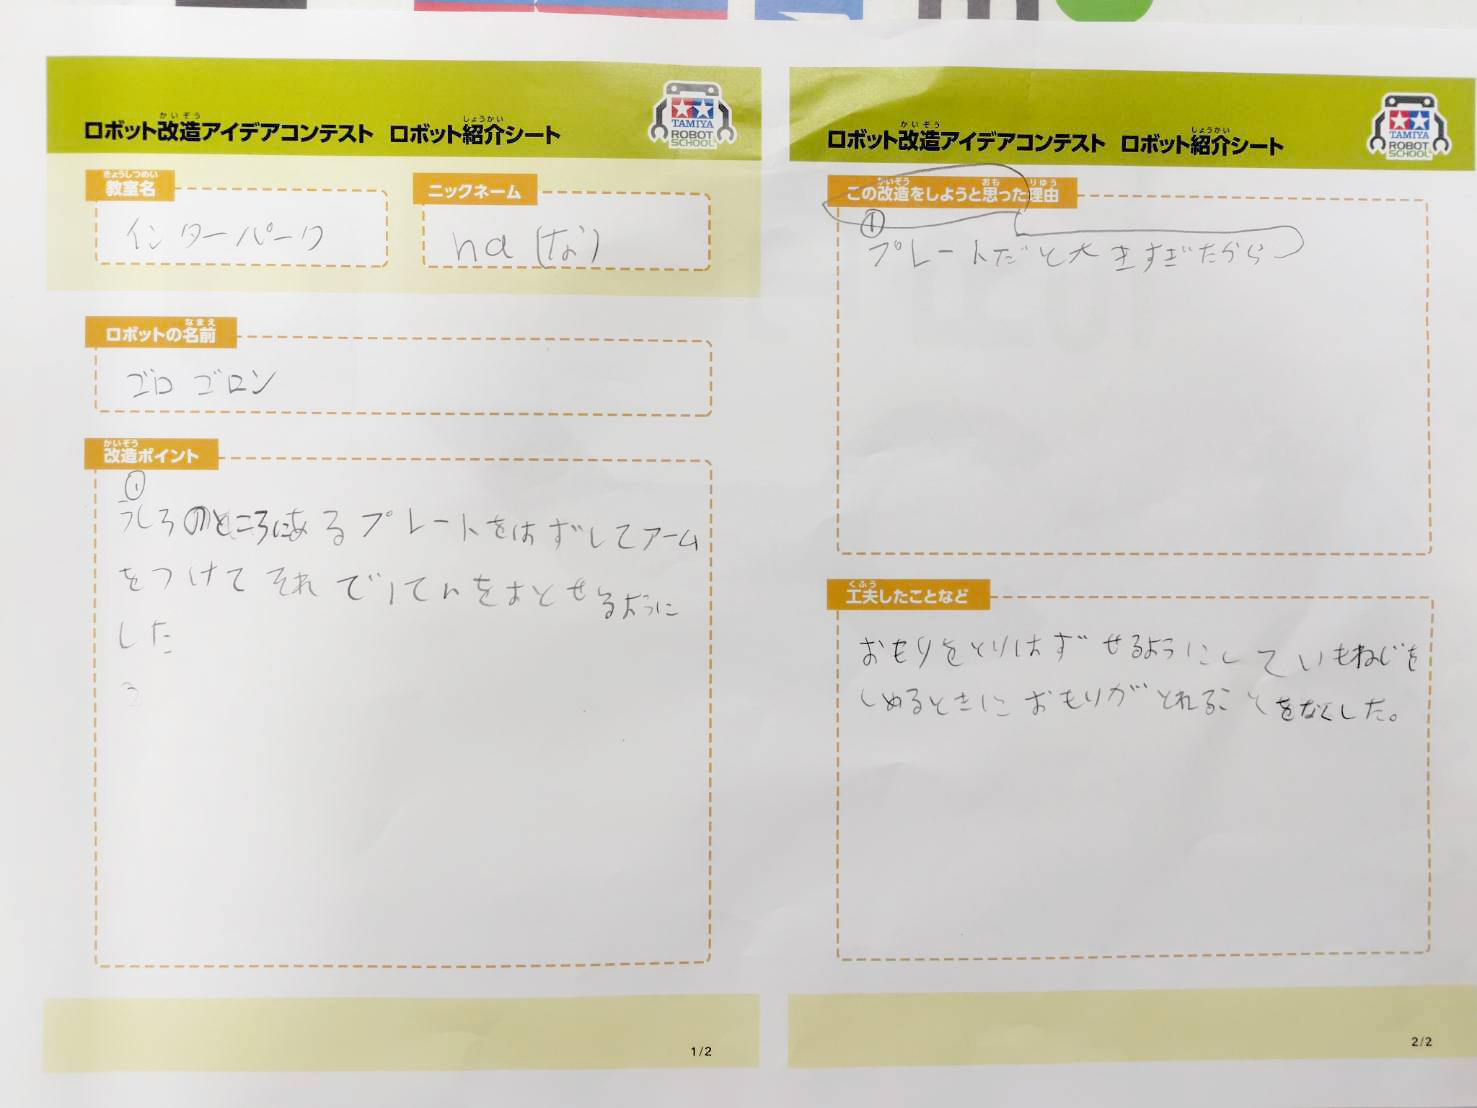 ロボット改造アイデアコンテスト ロボット紹介シート
かいぞう しょうかい
TAMIYA
ROBOT
SCHOOL
きょうしつめい
教室名
インターパーク
ニックネーム
na (な)
なまえ
ロボットの名前
ゴロゴロン
かいぞう
改造ポイント
①
うしろのところにあるプレートをはずしてアーム
をつけてそれで1てんをおとせるように
した
2
1/2
ロボット改造アイデアコンテスト ロボット紹介シート
かいぞう しょうかい
TAMIYA
ROBOT
SCHOOL
かいぞう おも りゆう
この改造をしようと思った理由
①
プレートだと大きすぎたから
くふう
工夫したことなど
おもりをとりはずせるようにしていもねじを
しめるときにおもりがとれることをなくした。
2/2